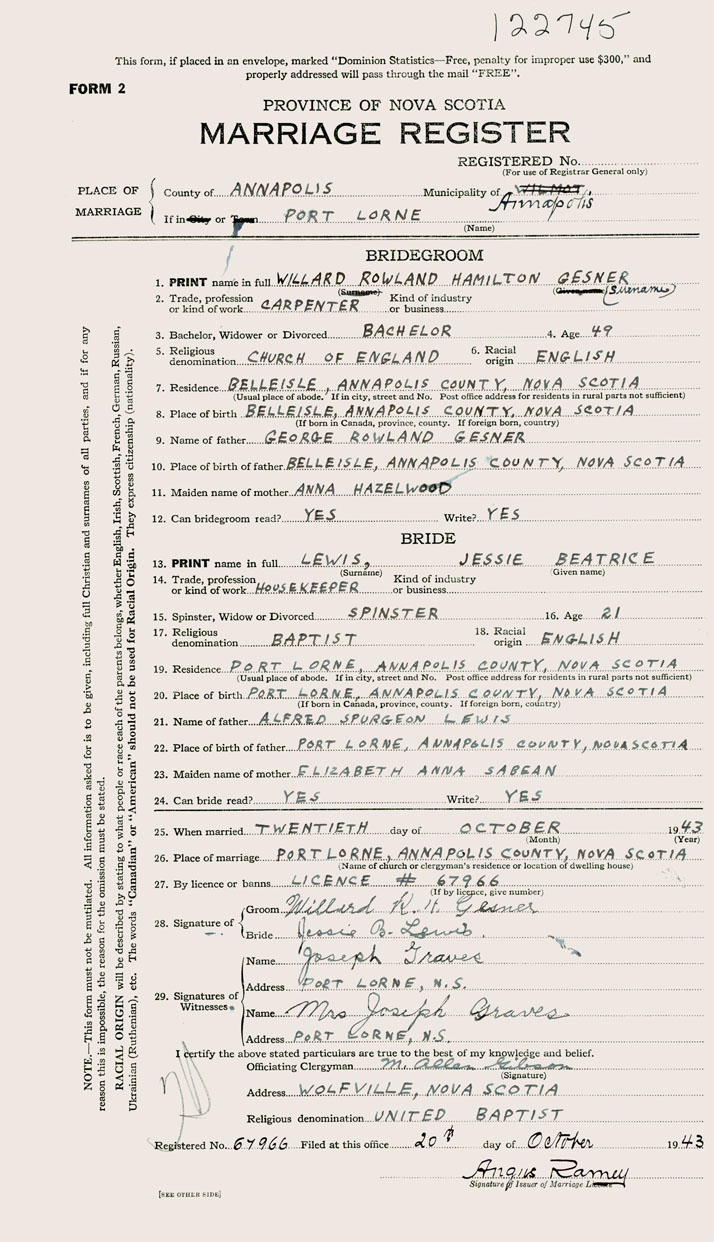 122745
This form, if placed in an envelope, marked "Dominion Statistics—Free, penalty for improper use $300," and
properly addressed will pass through the mail "FREE".
FORM 2
PROVINCE OF NOVA SCOTIA
MARRIAGE REGISTER
REGISTERED No.
(For use of Registrar General only)
PLACE OF MARRIAGE
County of ANNAPOLIS Municipality of WILMOT Annapolis
If in City or Town PORT LORNE
(Name)
BRIDEGROOM
1. PRINT name in full WILLARD ROWLAND HAMILTON GESNER
(Surname) (Given name) (Surname)
2. Trade, profession or kind of work CARPENTER Kind of industry or business
3. Bachelor, Widower or Divorced BACHELOR 4. Age 49
5. Religious denomination CHURCH OF ENGLAND 6. Racial origin ENGLISH
7. Residence BELLEISLE, ANNAPOLIS COUNTY, NOVA SCOTIA
(Usual place of abode. If in city, street and No. Post office address for residents in rural parts not sufficient)
8. Place of birth BELLEISLE, ANNAPOLIS COUNTY, NOVA SCOTIA
(If born in Canada, province, county. If foreign born, country)
9. Name of father GEORGE ROWLAND GESNER
10. Place of birth of father BELLEISLE, ANNAPOLIS COUNTY, NOVA SCOTIA
11. Maiden name of mother ANNA HAZELWOOD
12. Can bridegroom read? YES Write? YES
BRIDE
13. PRINT name in full LEWIS, JESSIE BEATRICE
(Surname) (Given name)
14. Trade, profession or kind of work HOUSEKEEPER Kind of industry or business
15. Spinster, Widow or Divorced SPINSTER 16. Age 21
17. Religious denomination BAPTIST 18. Racial origin ENGLISH
19. Residence PORT LORNE, ANNAPOLIS COUNTY, NOVA SCOTIA
(Usual place of abode. If in city, street and No. Post office address for residents in rural parts not sufficient)
20. Place of birth PORT LORNE, ANNAPOLIS COUNTY, NOVA SCOTIA
(If born in Canada, province, county. If foreign born, country)
21. Name of father ALFRED SPURGEON LEWIS
22. Place of birth of father PORT LORNE, ANNAPOLIS COUNTY, NOVA SCOTIA
23. Maiden name of mother ELIZABETH ANNA SABEAN
24. Can bride read? YES Write? YES
25. When married TWENTIETH day of OCTOBER 1943
(Month) (Year)
26. Place of marriage PORT LORNE, ANNAPOLIS COUNTY, NOVA SCOTIA
(Name of church or clergyman's residence or location of dwelling house)
27. By licence or banns LICENCE # 67966
(If by licence, give number)
28. Signature of Groom Willard R. H. Gesner
Bride Jessie B. Lewis.
29. Signatures of Witnesses Name Joseph Graves
Address PORT LORNE, N.S.
Name Mrs Joseph Graves
Address PORT LORNE, N.S.
I certify the above stated particulars are true to the best of my knowledge and belief.
Officiating Clergyman M. Allen Gibson
(Signature)
Address WOLFVILLE, NOVA SCOTIA
Religious denomination UNITED BAPTIST
Registered No. 67966 Filed at this office 20th day of October 1943
Angus Ramey
Signature of Issuer of Marriage License
[SEE OTHER SIDE]
NOTE.—This form must not be mutilated. All information asked for is to be given, including full Christian and surnames of all parties, and if for any
reason this is impossible, the reason for the omission must be stated.
RACIAL ORIGIN will be described by stating to what people or race each of the parents belongs, whether English, Irish, Scottish, French, German, Russian,
Ukrainian (Ruthenian), etc. The words "Canadian" or "American" should not be used for Racial Origin. They express citizenship (nationality).